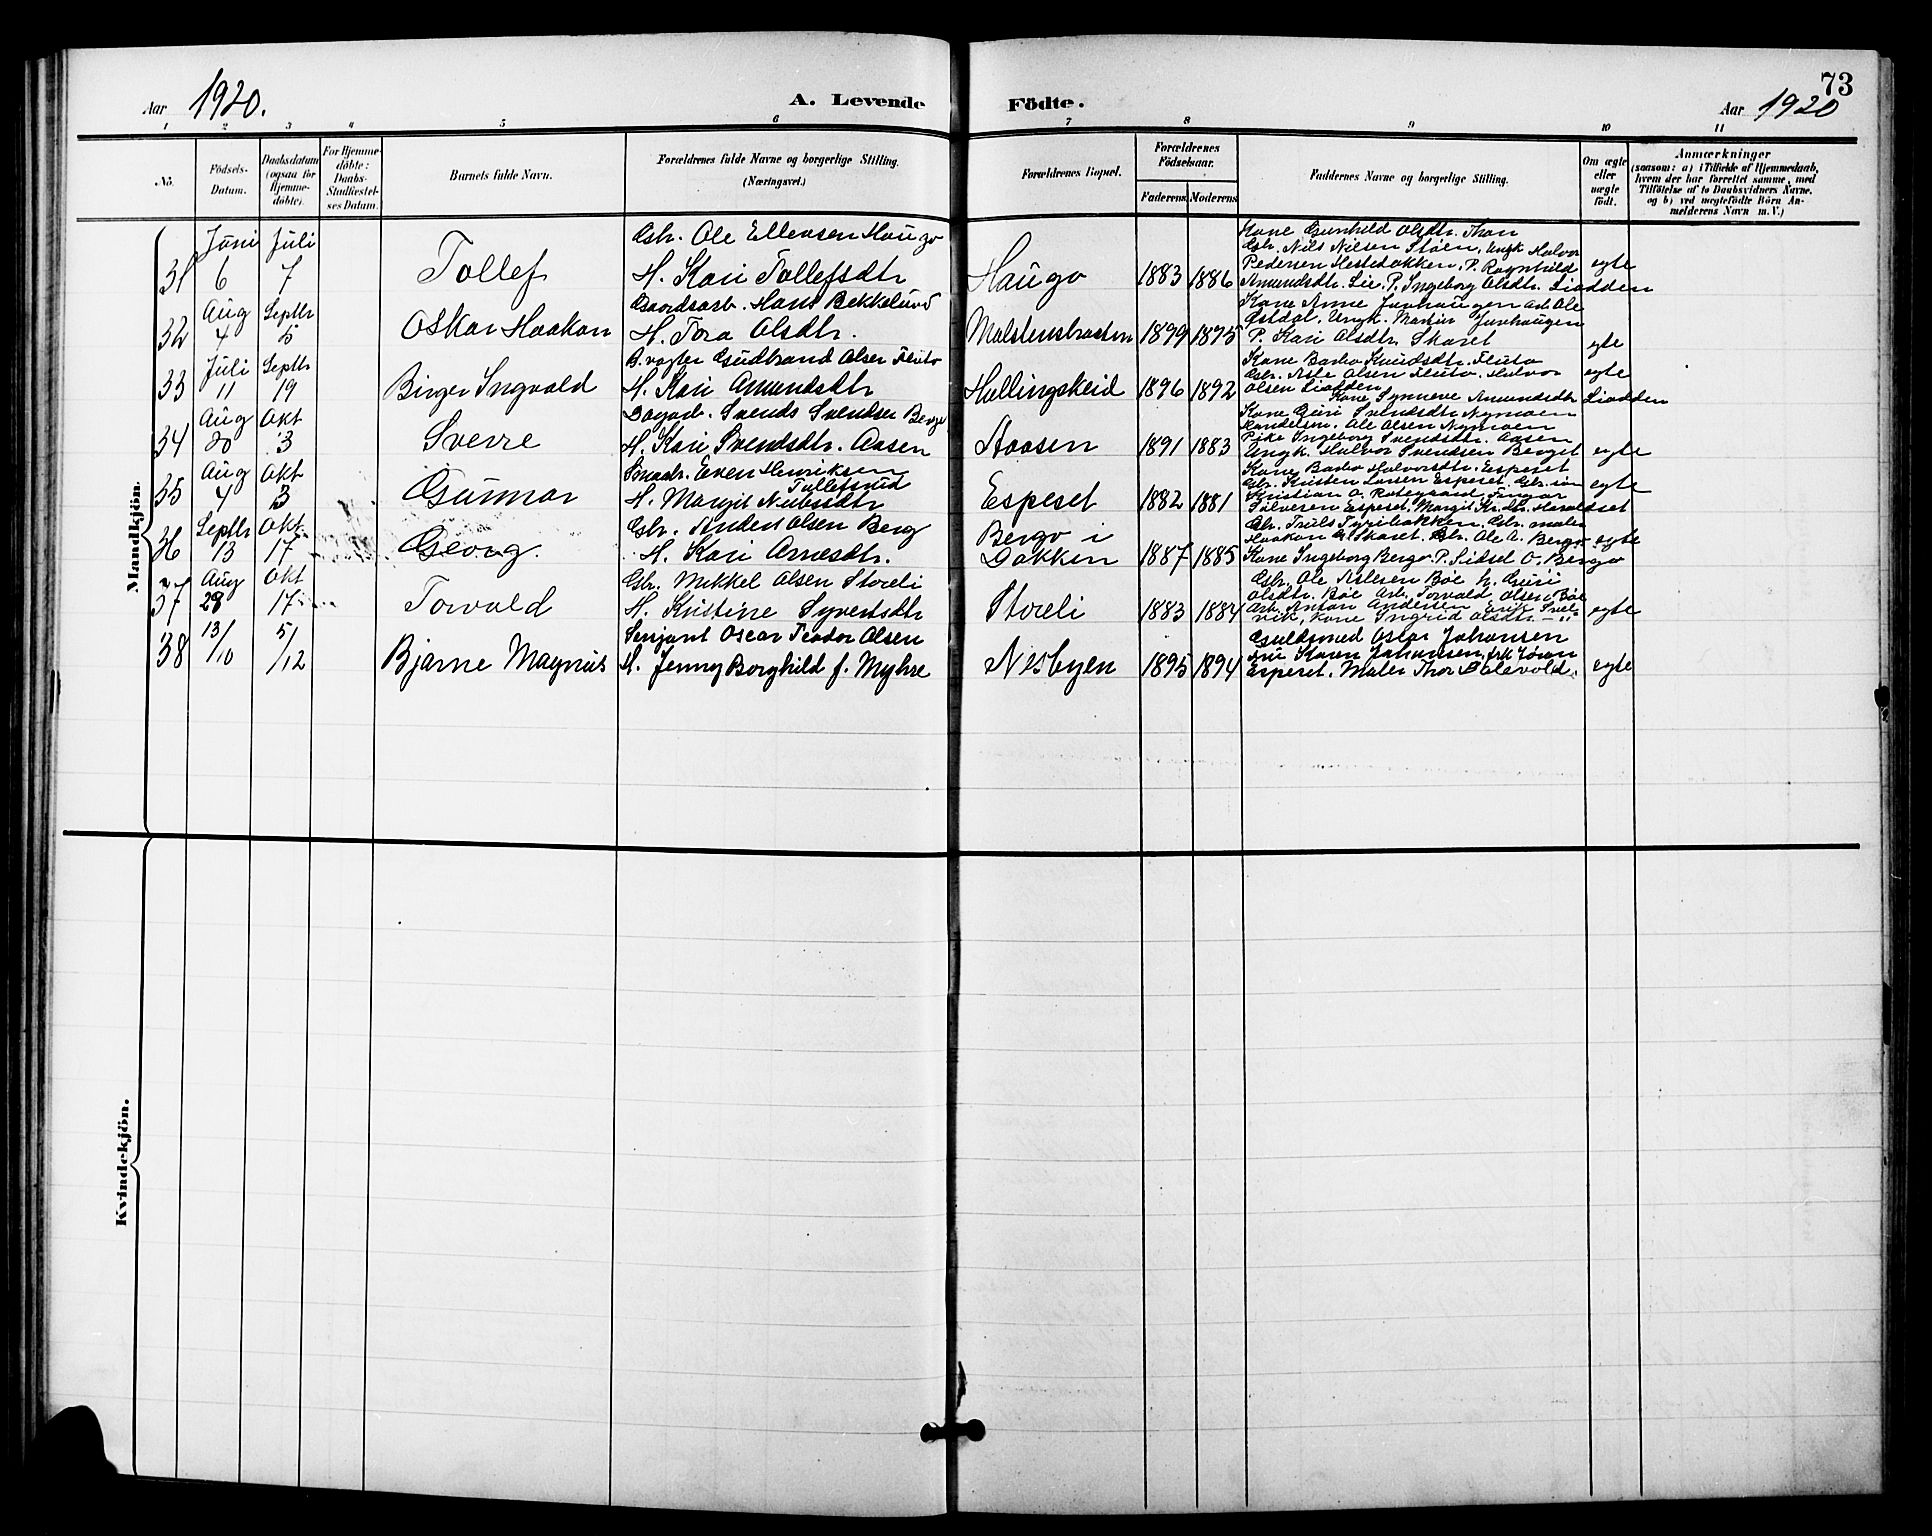 73
Aar 1920.
A. Levende Födte.
Aar 1920
1 2 3 4 5 6 7 8 9 10 11
No.
Födsels-Datum.
Daabsdatum (ogsaa for Hjemme-döbte).
For Hjemme-döbte: Daabs-Stadfæstel-ses Datum.
Barnets fulde Navn.
Forældrenes fulde Navne og borgerlige Stilling. (Næringsvei.)
Forældrenes Bopæl.
Forældrenes Födselsaar.
Faderens Moderens
Faddernes Navne og borgerlige Stilling.
Om ægte eller uægte født.
Anmærkninger
(saasom: a) i Tilfælde af Hjemmedaab, hvem der har forrettet samme, med Tilföielse af to Daabsvidners Navne, og b) ved uægtefödte Börn An-melderens Navn m. V.)
Mandkjön.
31 Juni 6 Juli 7 Tollef
Gbr. Ole Ellensen Haugo
H. Kari Tollefsdtr
Haugo 1883 1886
Kone Gunhild Olsdtr. Thon
Gbr. Nils Nilsen Støen, Ungk Halvor
Pedersen Hestebakken, P. Ragnhild
Amundsdtr. Lie. P. Ingeborg Olsdtr. Liodden
egte
32 Aug 4 Septbr 5 Oskar Haakon
Gaardsarb. Hans Bekkelund
H. Tora Olsdtr.
1899 1895
Kone Anne Juvhaugen Arb. Ole
Østdal, Ungk. Martin Juvhaugen
P. Kari Olsdtr. Skaret
egte
33 Juli 11 Septbr 19 Birger Ingvald
B.vogter Gudbrand Olsen Fluto
H. Kari Amundsdtr
Hallingskeid 1896 1892
Kone Barbo Knudsdtr. Fluto
Gbr. Asle Olsen Fluto, Halvor
Olsen Liodden
Kone Synneve Amundsdtr Liodden
egte
34 Aug 20 Okt 3 Sverre
Dagarb. Svends Svendsen Berge
H. Kari Svendsdtr. Aasen
Aaasen 1891 1883
Kone Guri Svendsdtr Nymoen
Handelsm. Ole Olsen Nymoen
Pike Ingeborg Svendsdtr. Aasen
Ungk. Halvor Svendsen Berget
egte
35 Aug 4 Okt 3 Gunnar
Smaabr. Even Henriksen
Tollefsrud
H. Margit Nubsdtr
Espeset 1882 1881
Kone Barbo Halvorsdtr. Espeset
Gbr. Kristen Larsen Espeset, Gbr. søn
Kristian O. Rotegaard, Fingar
Sølvesen Espeset, Margit Kr.dtr. Haraldset
egte
36 Septbr 13 Okt 17 Georg.
Gbr. Anders Olsen Berg
H. Kari Arnesdtr.
Bergo i
Dokken 1887 1885
Gbr. Truls Syribakken, Gbr. maler
Haakon G. Skaret. Gbr. Ole A. Bergo
Kone Ingeborg Bergo P. Sidsel O. Bergo
egte
37 Aug 28 Okt 17 Torvald
Gbr. Mikkel Olsen Storeli
H. Kristine Syvertsdtr
Storeli 1883 1884
Gbr. Ole Aslesen Bøe h. Guri
Olsdtr. Bøe Arb. Torvald Olsen Bøe
Arb. Anton Andersen Svel-
vik, Kone Ingrid Olsdtr. — "
egte
38 13/10 5/12 Bjarne Magnus
Serjant Oscar Teodor Olsen
H. Jenny Borghild f. Myhre
Nesbyen 1895 1894
Guldsmed Oskar Johansen
fru Karen Johansen, frk Jøran
Espeset, Maler Thor Dalevold.
egte
Kvindekjön.